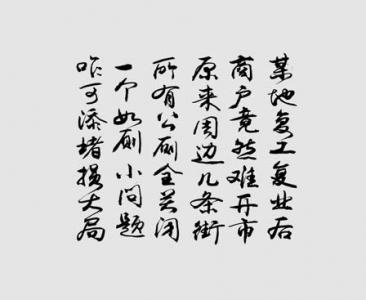 某地复工复业后
商户竟然难开市
原来周边几条街
所有公厕全关闭
一个如厕小问题
咋可添堵损大局